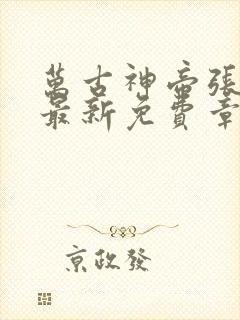 萬古神帝張
最新免費章
京政發